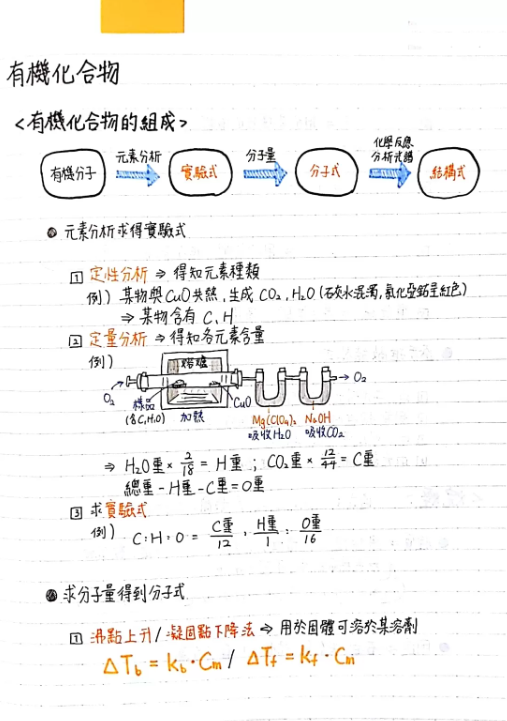 有機化合物
<有機化合物的組成>
有機分子 元素分析 實驗式 分子量 分子式 化學反應 分析光譜 結構式
元素分析求得實驗式
1 定性分析 ⇒ 得知元素種類
例) 某物與CuO共熱,生成 CO₂、H₂O (石灰水混濁,氯化亞鈷呈紅色)
⇒ 某物含有 C, H
2 定量分析 ⇒ 得知各元素含量
例)
熔爐
O₂ → O₂
樣品 CuO
(含C,H,O) 加熱 Mg(ClO₄)₂ NaOH
吸收H₂O 吸收CO₂
⇒ H₂O重 × 2/18 = H重 ; CO₂重 × 12/44 = C重
總重 - H重 - C重 = O重
3 求實驗式
例) C:H:O = C重/12 : H重/1 : O重/16
求分子量得到分子式
1 沸點上升/凝固點下降法 ⇒ 用於固體可溶於某溶劑
ΔTb = kb · Cm / ΔTf = kf · Cm